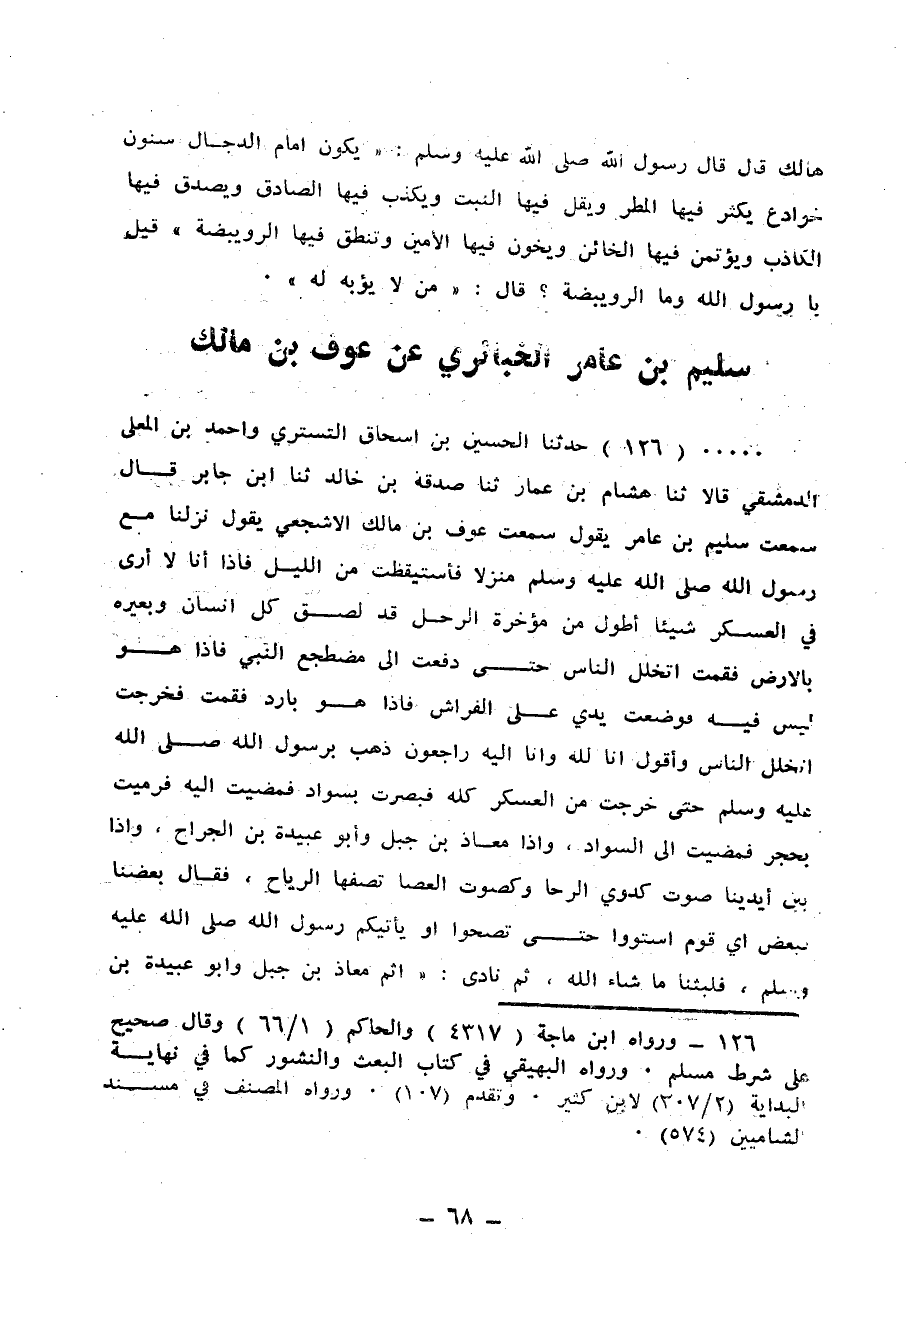 مالك قال قال رسول الله صلى الله عليه وسلم : « يكون امام الدجال سنون
خوادع يكثر فيها المطر ويقل فيها النبت ويكذب فيها الصادق ويصدق فيها
الكاذب ويؤتمن فيها الخائن ويخون فيها الأمين وتنطق فيها الرويبضة » قيل
يا رسول الله وما الرويبضة ؟ قال : « من لا يؤبه له » ·
سليم بن عامر الخبائري عن عوف بن مالك
····· ( ١٢٦ ) حدثنا الحسين بن اسحاق التستري واحمد بن المعلى
الدمشقي قالا ثنا هشام بن عمار ثنا صدقة بن خالد ثنا ابن جابر قال
سمعت سليم بن عامر يقول سمعت عوف بن مالك الاشجعي يقول نزلنا مع
رسول الله صلى الله عليه وسلم منزلا فأستيقظت من الليل فاذا أنا لا أرى
في العسكر شيئا أطول من مؤخرة الرحل قد لصق كل انسان وبعيره
بالارض فقمت اتخلل الناس حتى دفعت الى مضطجع النبي فاذا هو
ليس فيه فوضعت يدي على الفراش فاذا هو بارد فقمت فخرجت
اتخلل الناس وأقول انا لله وانا اليه راجعون ذهب برسول الله صلى الله
عليه وسلم حتى خرجت من العسكر كله فبصرت بسواد فمضيت اليه فرميت
بحجر فمضيت الى السواد ، واذا معاذ بن جبل وأبو عبيدة بن الجراح ، واذا
بين أيدينا صوت كدوي الرحا وكصوت العصا تصفها الرياح ، فقال بعضنا
لبعض اي قوم استووا حتى تصحوا او يأتيكم رسول الله صلى الله عليه
وسلم ، فلبثنا ما شاء الله ، ثم نادى : « اثم معاذ بن جبل وابو عبيدة بن
١٢٦ ـ ورواه ابن ماجة ( ٤٣١٧ ) والحاكم ( ٦٦/١ ) وقال صحيح
على شرط مسلم · ورواه البهيقي في كتاب البعث والنشور كما في نهاية
البداية (٣٠٧/٢) لابن كثير · وتقدم (١٠٧) · ورواه المصنف في مسند
الشاميين (٥٧٤) ·
ـ ٦٨ ـ